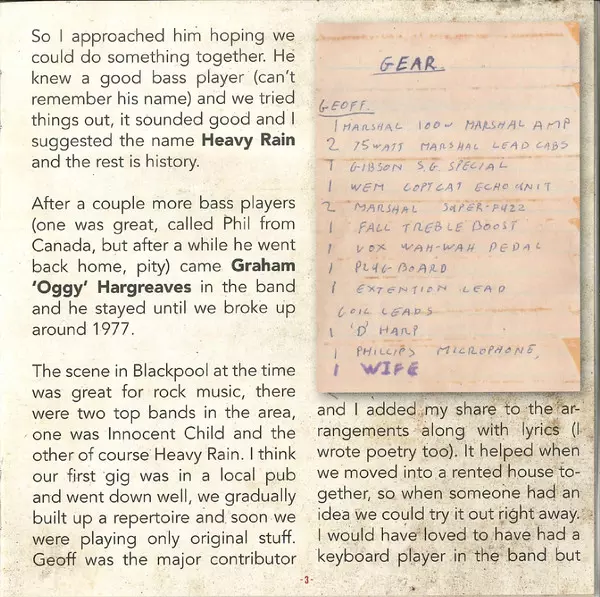 So I approached him hoping we
could do something together. He
knew a good bass player (can't
remember his name) and we tried
things out, it sounded good and I
suggested the name Heavy Rain
and the rest is history.
After a couple more bass players
(one was great, called Phil from
Canada, but after a while he went
back home, pity) came Graham
'Oggy' Hargreaves in the band
and he stayed until we broke up
around 1977.
The scene in Blackpool at the time
was great for rock music, there
were two top bands in the area,
one was Innocent Child and the
other of course Heavy Rain. I think
our first gig was in a local pub
and went down well, we gradually
built up a repertoire and soon we
were playing only original stuff.
Geoff was the major contributor
GEAR.
GEOFF.
1 MARSHAL 100W MARSHAL AMP
2 75WATT MARSHAL LEAD CABS
1 GIBSON S.G. SPECIAL
1 WEM COPYCAT ECHO UNIT
2 MARSHAL SUPER-FUZZ
1 FALL TREBLE BOOST
1 VOX WAH-WAH PEDAL
1 PLUG-BOARD
1 EXTENTION LEAD
COIL LEADS
1 'D' HARP
1 PHILLIPS MICROPHONE,
1 WIFE
and I added my share to the ar-
rangements along with lyrics (I
wrote poetry too). It helped when
we moved into a rented house to-
gether, so when someone had an
idea we could try it out right away.
I would have loved to have had a
keyboard player in the band but
-3-